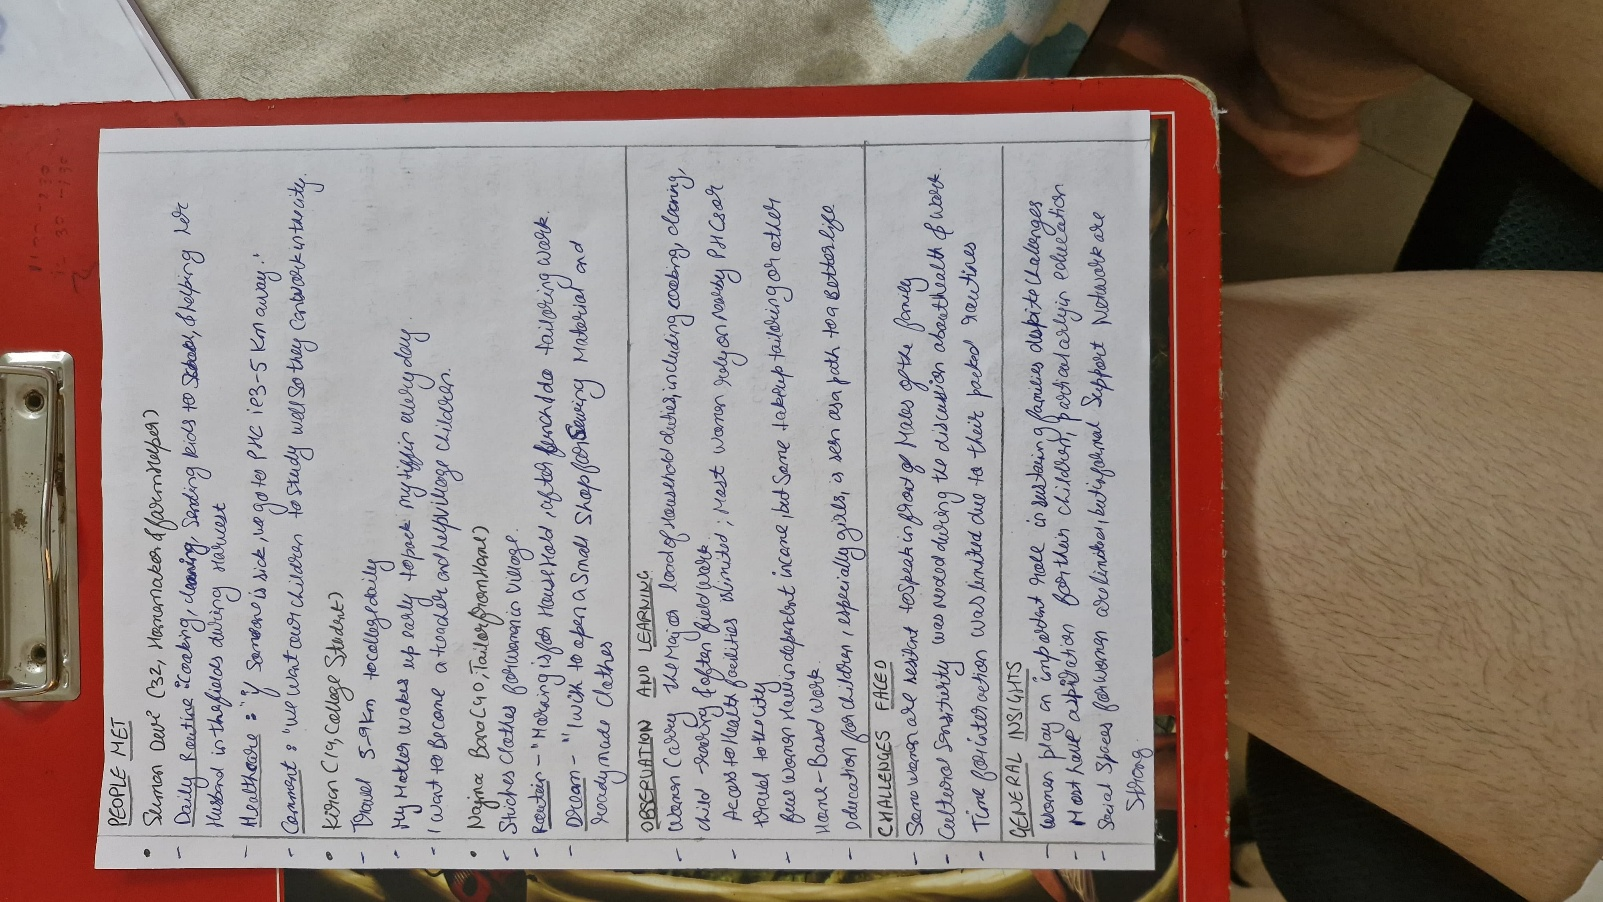 PEOPLE MET
• Suman Devi (32, Homemaker & farm helper)
- Daily Routine: "Cooking, cleaning, sending kids to school, & helping her
Husand in the fields during harvest
- Healthcare: "if Someone is sick, we go to PHC ie 3-5 Km away."
- Comment: "we want our children to study well so they can work in the city.
• Kiran (19, College Student)
- Travel 5-9 km to college daily
- My Mother wakes up early to pack my tiffin every day.
- I want to Become a teacher and help village children.
• Nagma Bano (40, Tailor from Home)
- Stiches Clothes for women in Village.
- Routein - "Morning is for House Hold, after lunch I do tailoring work.
- Dream - "I wish to open a Small Shop for Sewing Material and
ready made clothes
OBSERVATION AND LEARNING
- Women Carry the Major load of Household duties, including cooking, cleaning,
child-rearing & often field work
- Access to Health facilities is limited; Most women rely on nearby PHCs or
travel to the city
- few women have independent income but some take up tailoring or other
Home-Based work.
- Education for children, especially girls, is seen as a path to a Better life
CHALLENGES FACED
- Some women are hesitant to speak in front of Males of the family
- Cultural Sensitivity was needed during the discussion about health & work.
- Time for interaction was limited due to their packed routines
GENERAL INSIGHTS
- Women play an important role in sustaing families despite challenges
- Most have aspiration for their children, particularly in education
- Social Spaces for women are limited, but informal Support Network are
Strong.